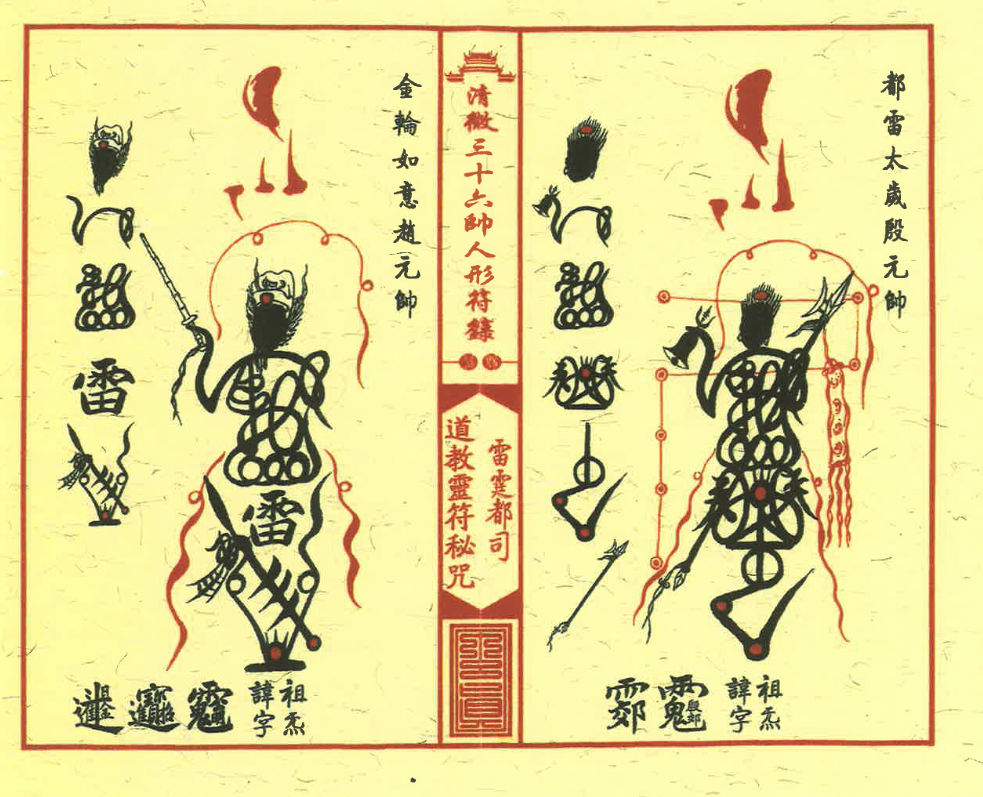 都雷太歲殷元帥
祖炁
諱字
清微三十六帥人形符籙
雷霆都司
道教靈符秘咒
金輪如意趙元帥
雷
雷
祖炁
諱字